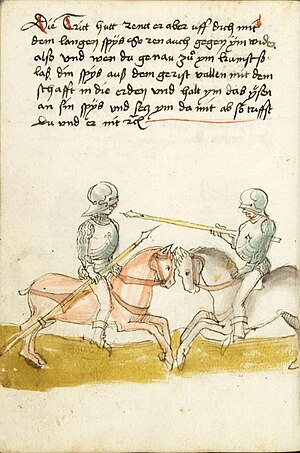 Die Tritt hutt rentt er aber uff dich mit
dem langen spÿs So ren auch gegen ÿm wider
also Und wen du genau zuͦ ÿm kumst so
laß din spÿs auß dem gerist vallen mit dem
schafft in die erden und halt ÿm das ÿsen
an sin spÿs und setz ÿm da mit ab so triffst
du und er nit